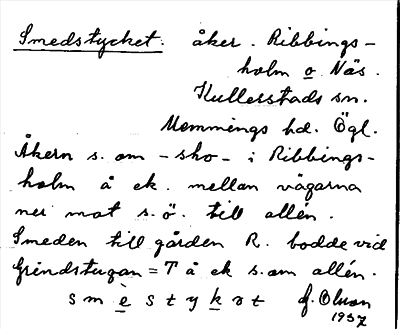 Smedstycket: åker. Ribbings-
holm o Näs.
Kullerstads sn.
Memmings hd. Ögl.
Åkern s. om -sko- i Ribbings-
holm å ek. mellan vägarna
ner mot s.ö. till allén.
Smeden till gården R. bodde vid
Grindstugan = T å ek s. om allén.
s m è s t y k ə t G. Olson
1937